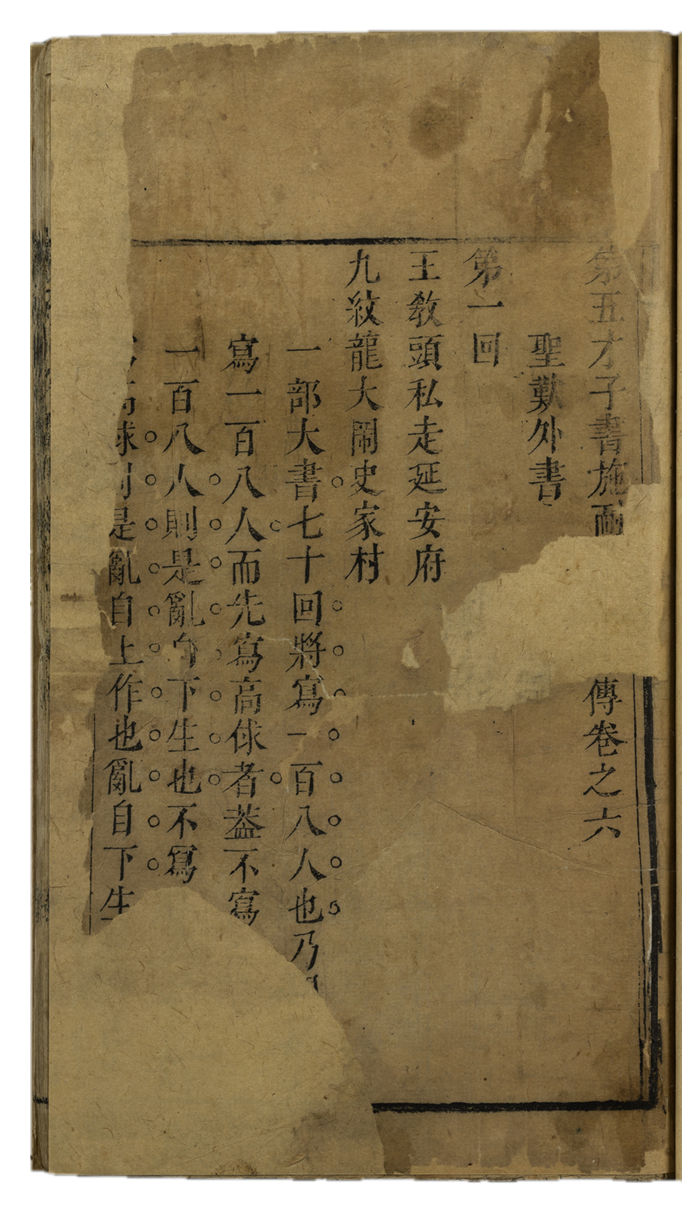 第五才子書施耐傳卷之六
聖歎外書
第一回
王教頭私走延安府
九紋龍大鬧史家村
一部大書七十回將寫一百八人也乃
寫一百八人而先寫高俅者葢不寫
一百八人則是亂自下生也不寫
俅則是亂自上作也亂自下生